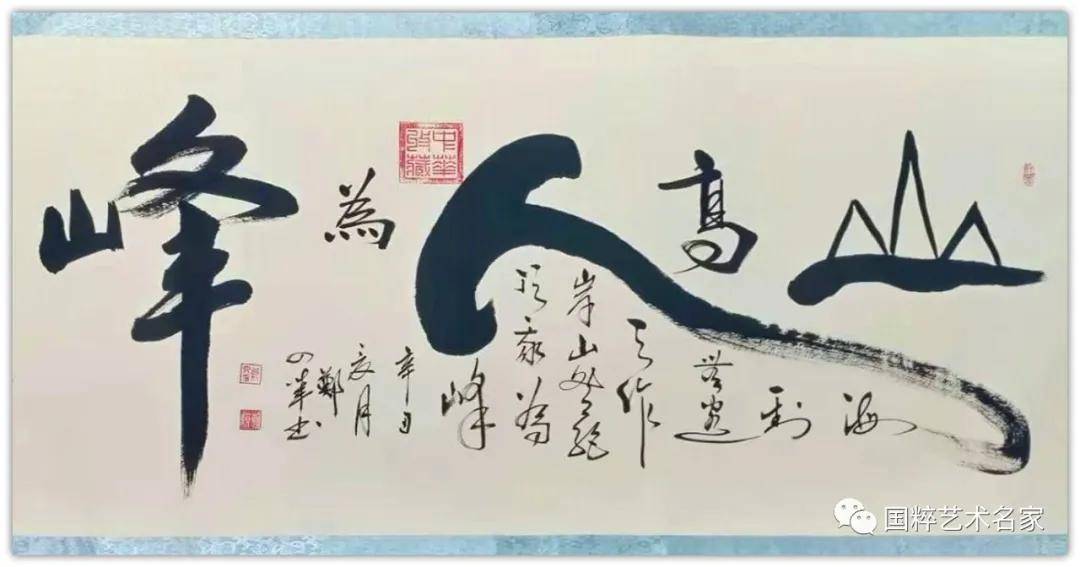 山高人為峰
海
到
無邊
天作
岸山登絕
頂我為
峰
辛丑
亥月
鄭
中華收藏
国粹艺术名家